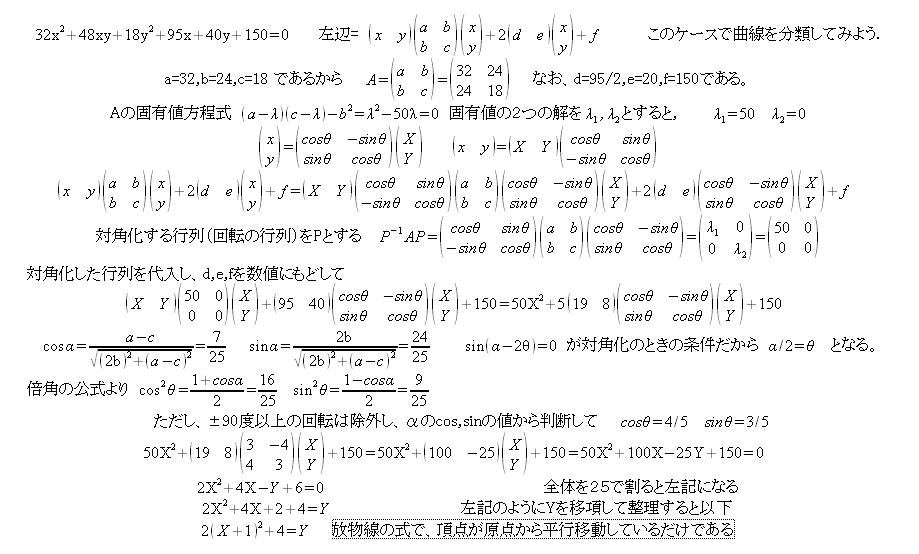 32x²+48xy+18y²+95x+40y+150=0 左辺= (x y)(a b; b c)(x; y)+2(d e)(x; y)+f このケースで曲線を分類してみよう.
a=32,b=24,c=18 であるから A=(a b; b c)=(32 24; 24 18) なお、d=95/2,e=20,f=150である。
Aの固有値方程式 (a−λ)(c−λ)−b²=λ²−50λ=0 固有値の2つの解をλ₁,λ₂とすると, λ₁=50 λ₂=0
(x; y)=(cosθ −sinθ; sinθ cosθ)(X; Y) (x y)=(X Y)(cosθ sinθ; −sinθ cosθ)
(x y)(a b; b c)(x; y)+2(d e)(x; y)+f=(X Y)(cosθ sinθ; −sinθ cosθ)(a b; b c)(cosθ −sinθ; sinθ cosθ)(X; Y)+2(d e)(cosθ −sinθ; sinθ cosθ)(X; Y)+f
対角化する行列(回転の行列)をPとする P⁻¹AP=(cosθ sinθ; −sinθ cosθ)(a b; b c)(cosθ −sinθ; sinθ cosθ)=(λ₁ 0; 0 λ₂)=(50 0; 0 0)
対角化した行列を代入し、d,e,fを数値にもどして
(X Y)(50 0; 0 0)(X; Y)+(95 40)(cosθ −sinθ; sinθ cosθ)(X; Y)+150=50X²+5(19 8)(cosθ −sinθ; sinθ cosθ)(X; Y)+150
cosα=(a−c)/√((2b)²+(a−c)²)=7/25 sinα=2b/√((2b)²+(a−c)²)=24/25 sin(α−2θ)=0 が対角化のときの条件だから α/2=θ となる。
倍角の公式より cos²θ=(1+cosα)/2=16/25 sin²θ=(1−cosα)/2=9/25
ただし、±90度以上の回転は除外し、αのcos,sinの値から判断して cosθ=4/5 sinθ=3/5
50X²+(19 8)(3 −4; 4 3)(X; Y)+150=50X²+(100 −25)(X; Y)+150=50X²+100X−25Y+150=0
2X²+4X−Y+6=0 全体を25で割ると左記になる
2X²+4X+2+4=Y 左記のようにYを移項して整理すると以下
2(X+1)²+4=Y 放物線の式で、頂点が原点から平行移動しているだけである